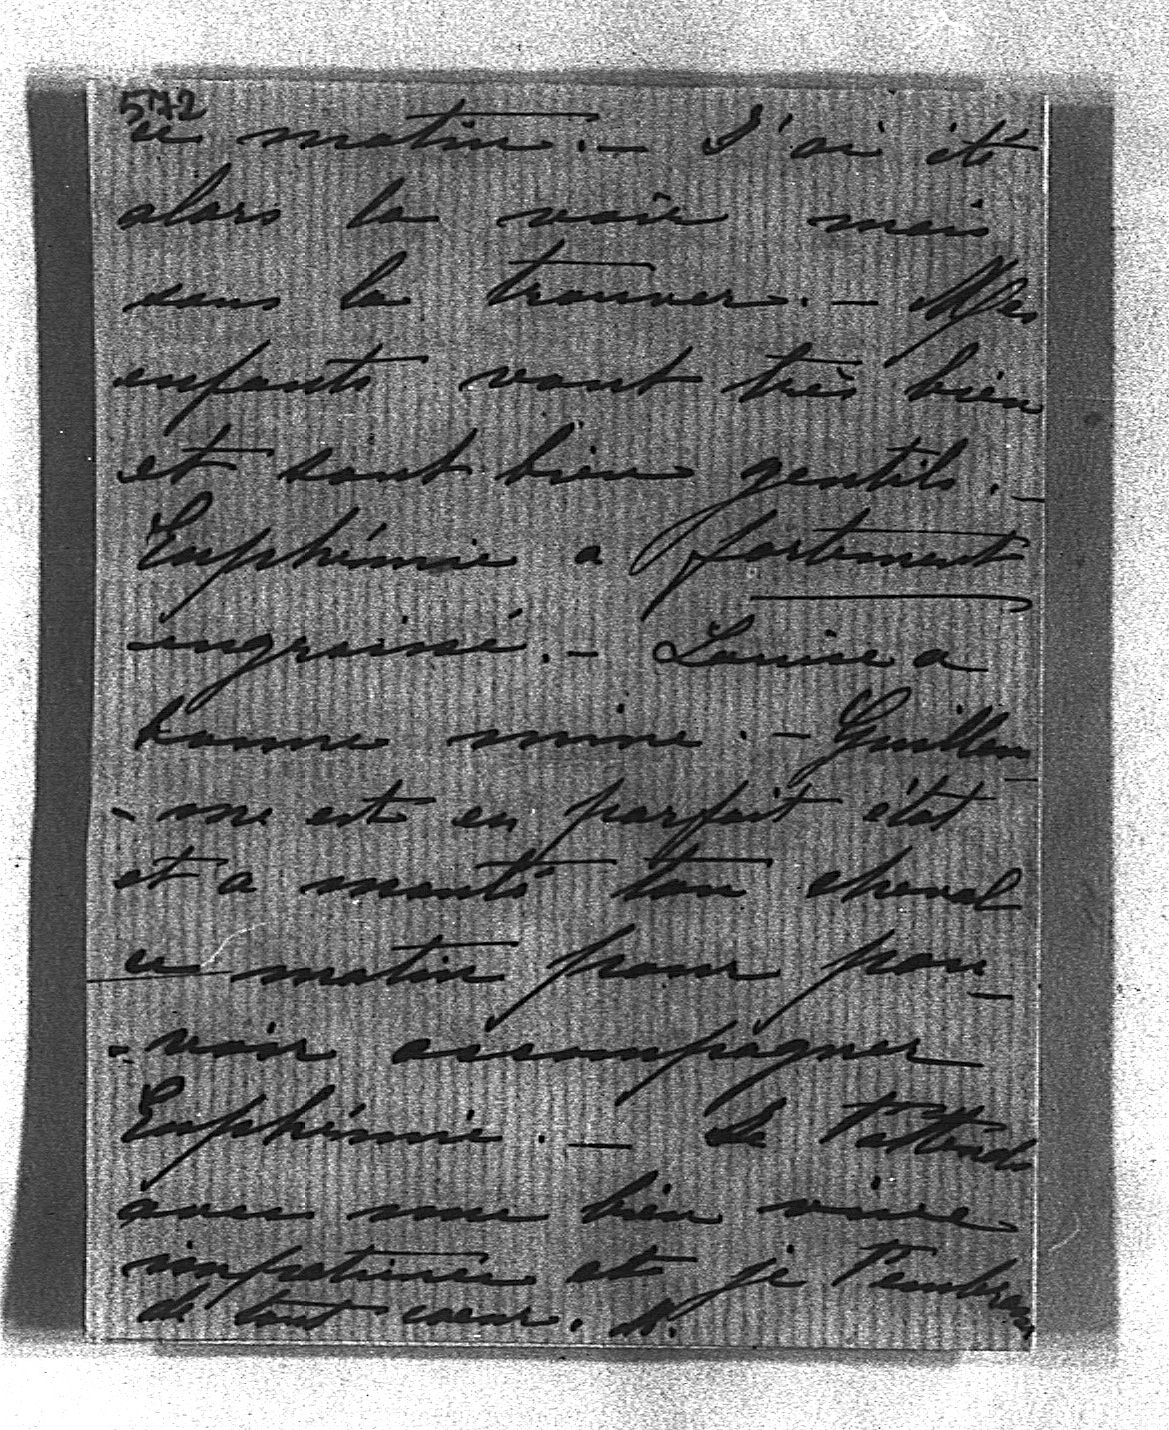 572
ce matin. — J'ai été
alors la voir mais
sans la trouver. — Mes
enfants vont très bien
et sont bien gentils. —
Euphémie a fortement
engraissé. — Louise a
bonne mine. — Guillau-
-me est en parfait état
et a monté ton cheval
ce matin pour pou-
-voir accompagner
Euphémie. — Je t'attends
avec une bien vive
impatience et je t'embrasse
de tout cœur. A.